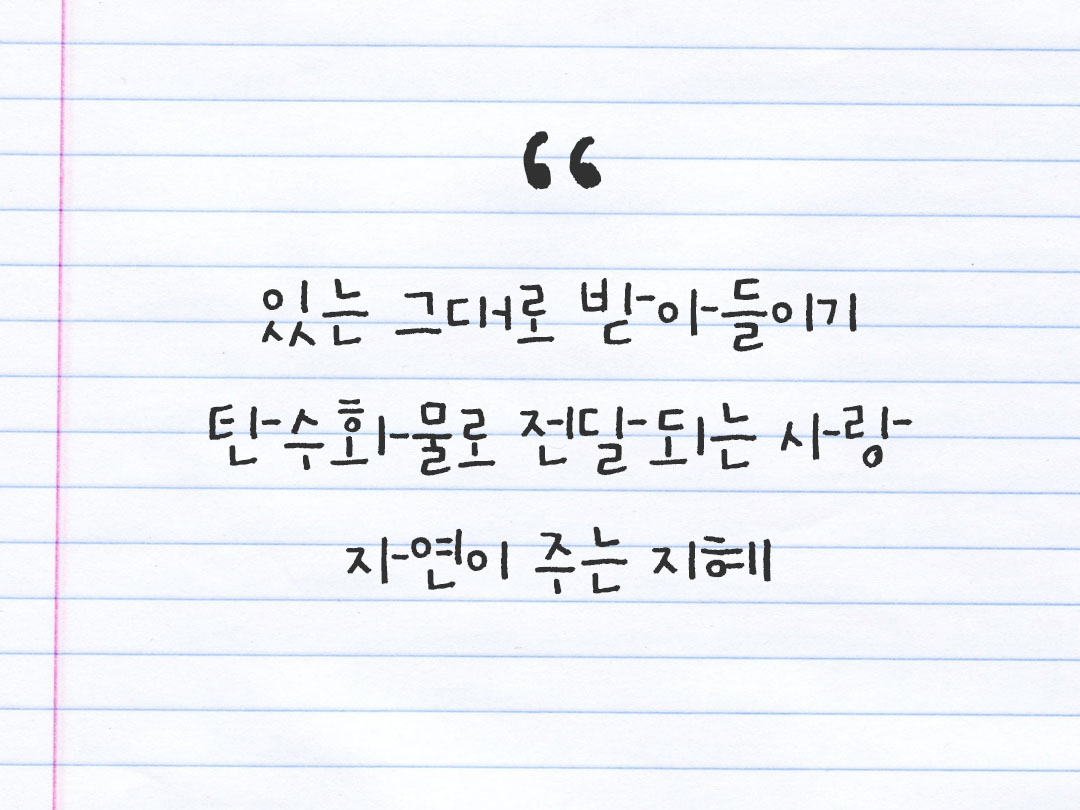 “
있는 그대로 받아들이기
탄수화물로 전달되는 사랑
자연이 주는 지혜